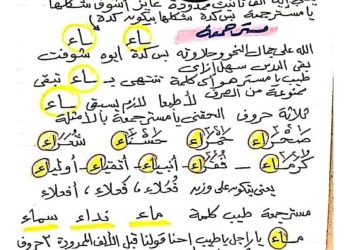 يعني إيه ألف تأنيث ممدودة عايز أشوف شكلها
يا مستر جمعة بس كدة شكلها بيكون كدة)
مستر جمعة
ـاء ـاء
الله على جمال النحو وحلاوته بس كدة أيوه شوفت
بقى الدرس سهل إزاى
طيب يا مستر هو أى كلمة تنتهى بـ ـاء تبقى
ممنوعة من الصرف لأ طبعا لازم يسبقى ـاء
ثلاثة حروف الحقنى يا مستر جمعة بالأمثلة
صحراء حمراء حسناء شعراء
كرماء - فقراء - أنبياء - أتقياء - أولياء
يعنى يتكونه على وزن فعلاء، فعلاء، أفعلاء
مستر جمعة طيب كلمة ماء نداء سماء
مـاء يا راجل يا طيب احنا قولنا قبل الألف الممدودة ٣ حروف